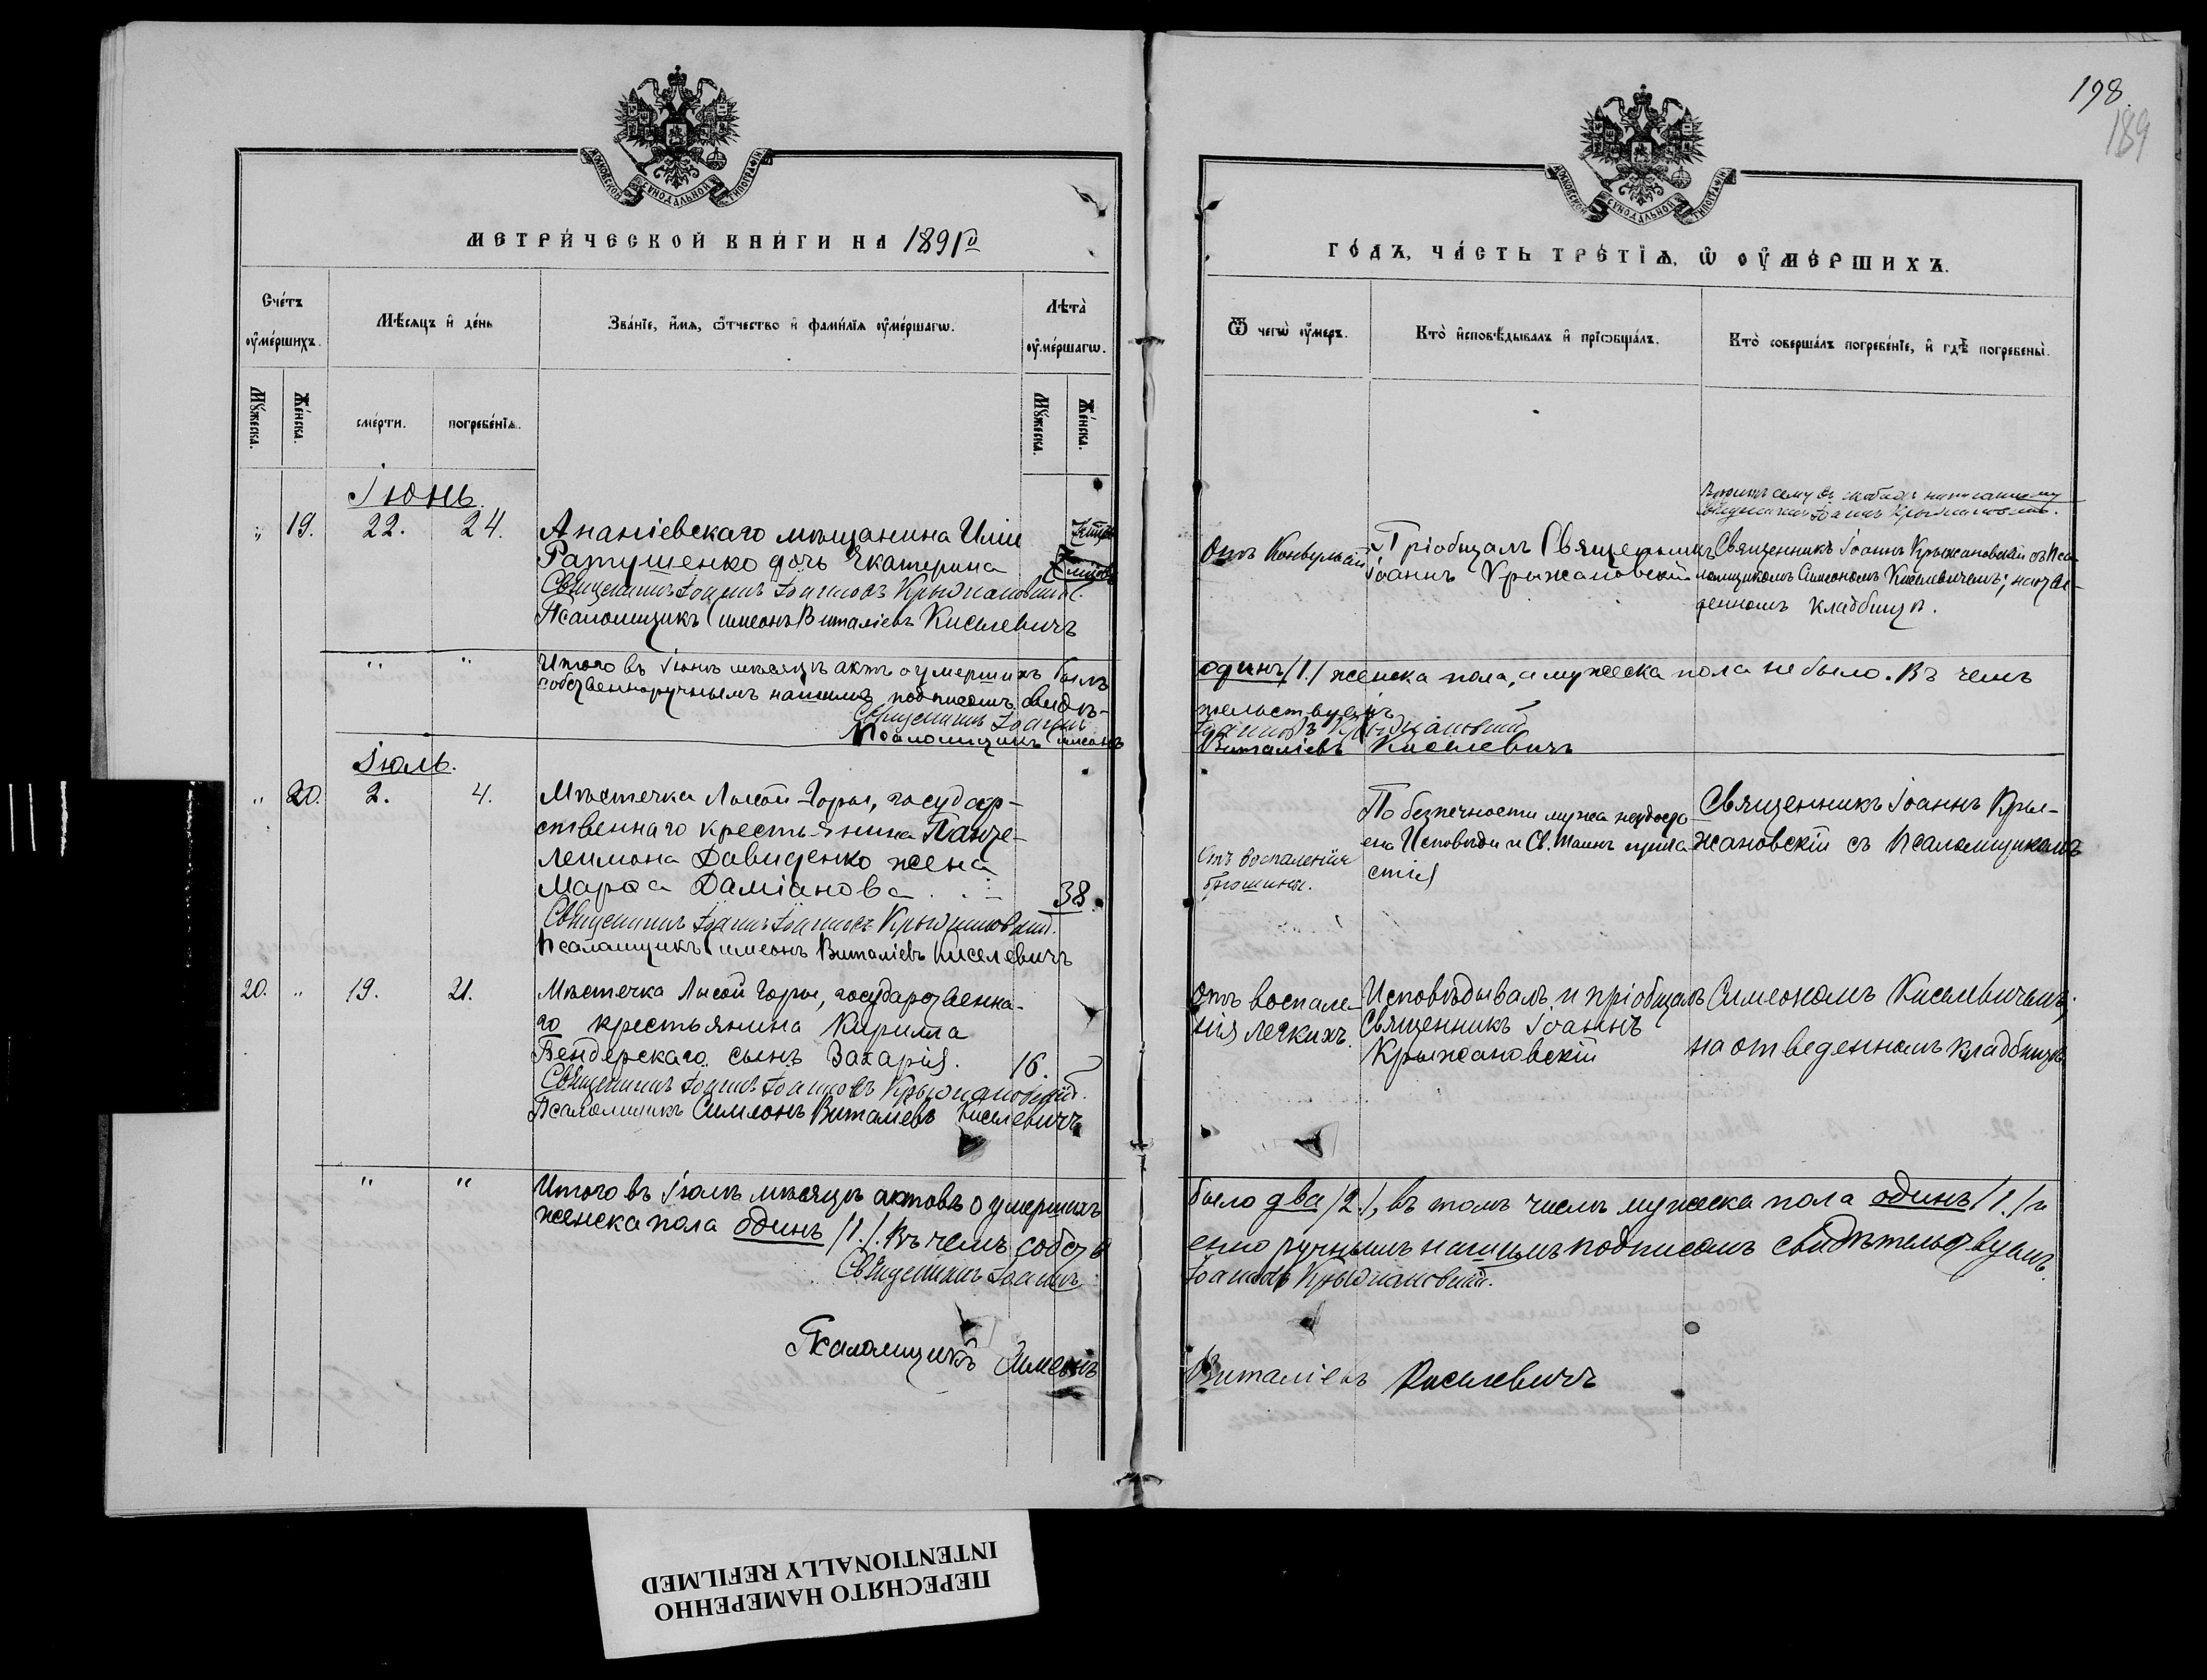 МОСКОВСКОЙ СѴНОДАЛЬНОЙ ТИПОГРАФІИ
МЕТРИЧЕСКОЙ КНИГИ НА 1891го
Счетъ умершихъ.
Мѣсяцъ и день
Званіе, имя, отчество и фамилія умершагѡ.
Лѣта умершагѡ.
Мужеска.
Женска.
смерти.
погребенія.
Мужеска.
Женска.
Іюнь.
" 19. 22. 24.
Ананіевскаго мѣщанина Иліи
Ратушенко дочь Екатерина
Священникъ Іоаннъ Іоанновъ Крыжановскій.
Псаломщикъ Симеонъ Виталіевъ Киселевичъ
" "
Итого въ Іюнѣ мѣсяцѣ актъ о умершихъ былъ
собственноручнымъ нашимъ подписомъ свидѣ-
Священникъ Іоаннъ
Псаломщикъ Симеонъ
Іюль.
" 20. 2. 4.
Мѣстечка Лысой-Горы, государ-
ственнаго крестьянина Панте-
леимона Давиденко жена
Марѳа Даміанова 38.
Священникъ Іоаннъ Іоанновъ Крыжановскій.
Псаломщикъ Симеонъ Виталіевъ Киселевичъ
20. " 19. 21.
Мѣстечка Лысой Горы, государственна-
го крестьянина Кирилла
Бендерскаго сынъ Захарія. 16.
Священникъ Іоаннъ Іоанновъ Крыжановскій.
Псаломщикъ Симеонъ Виталіевъ Киселевичъ
" "
Итого въ Іюлѣ мѣсяцѣ актовъ о умершихъ
женска пола одинъ /1./. Въ чемъ собств
Священникъ Іоаннъ
Псаломщикъ Симеонъ
198.
189
МОСКОВСКОЙ СѴНОДАЛЬНОЙ ТИПОГРАФІИ
ГОДЪ, ЧАСТЬ ТРЕТІЯ, Ѡ ОУМЕРШИХЪ.
Ѿ чегѡ умеръ.
Кто исповѣдывалъ и пріобщалъ.
Кто совершалъ погребеніе, и гдѣ погребены.
Іоаннъ Крыжановскій.
Отъ Конвульсій
Пріобщалъ Священникъ
Іоаннъ Крыжановскій
Священникъ Іоаннъ Крыжановскій съ Пса-
ломщикомъ Симеономъ Киселевичемъ; на отве-
денномъ кладбищѣ.
одинъ /1./ женска пола, а мужеска пола не было. Въ чемъ
тельствуемъ
Іоанновъ Крыжановскій
Виталіевъ Киселевичъ
Отъ воспаленія
брюшины.
По безпечности мужа неудосто-
ена Исповѣди и Св. Таинъ прича
стія
Священникъ Іоаннъ Кры-
жановскій съ Псаломщикомъ
Отъ воспале-
нія легкихъ.
Исповѣдывалъ и пріобщалъ
Священникъ Іоаннъ
Крыжановскій
Симеономъ Киселевичемъ;
на отведенномъ кладбищѣ
было два /2./, въ томъ числѣ мужеска пола одинъ /1./ и
енно ручнымъ нашимъ подписомъ свидѣтельствуемъ.
Іоанновъ Крыжановскій.
Виталіевъ Киселевичъ
ПЕРЕСНЯТО НАМЕРЕННО
INTENTIONALLY REFILMED